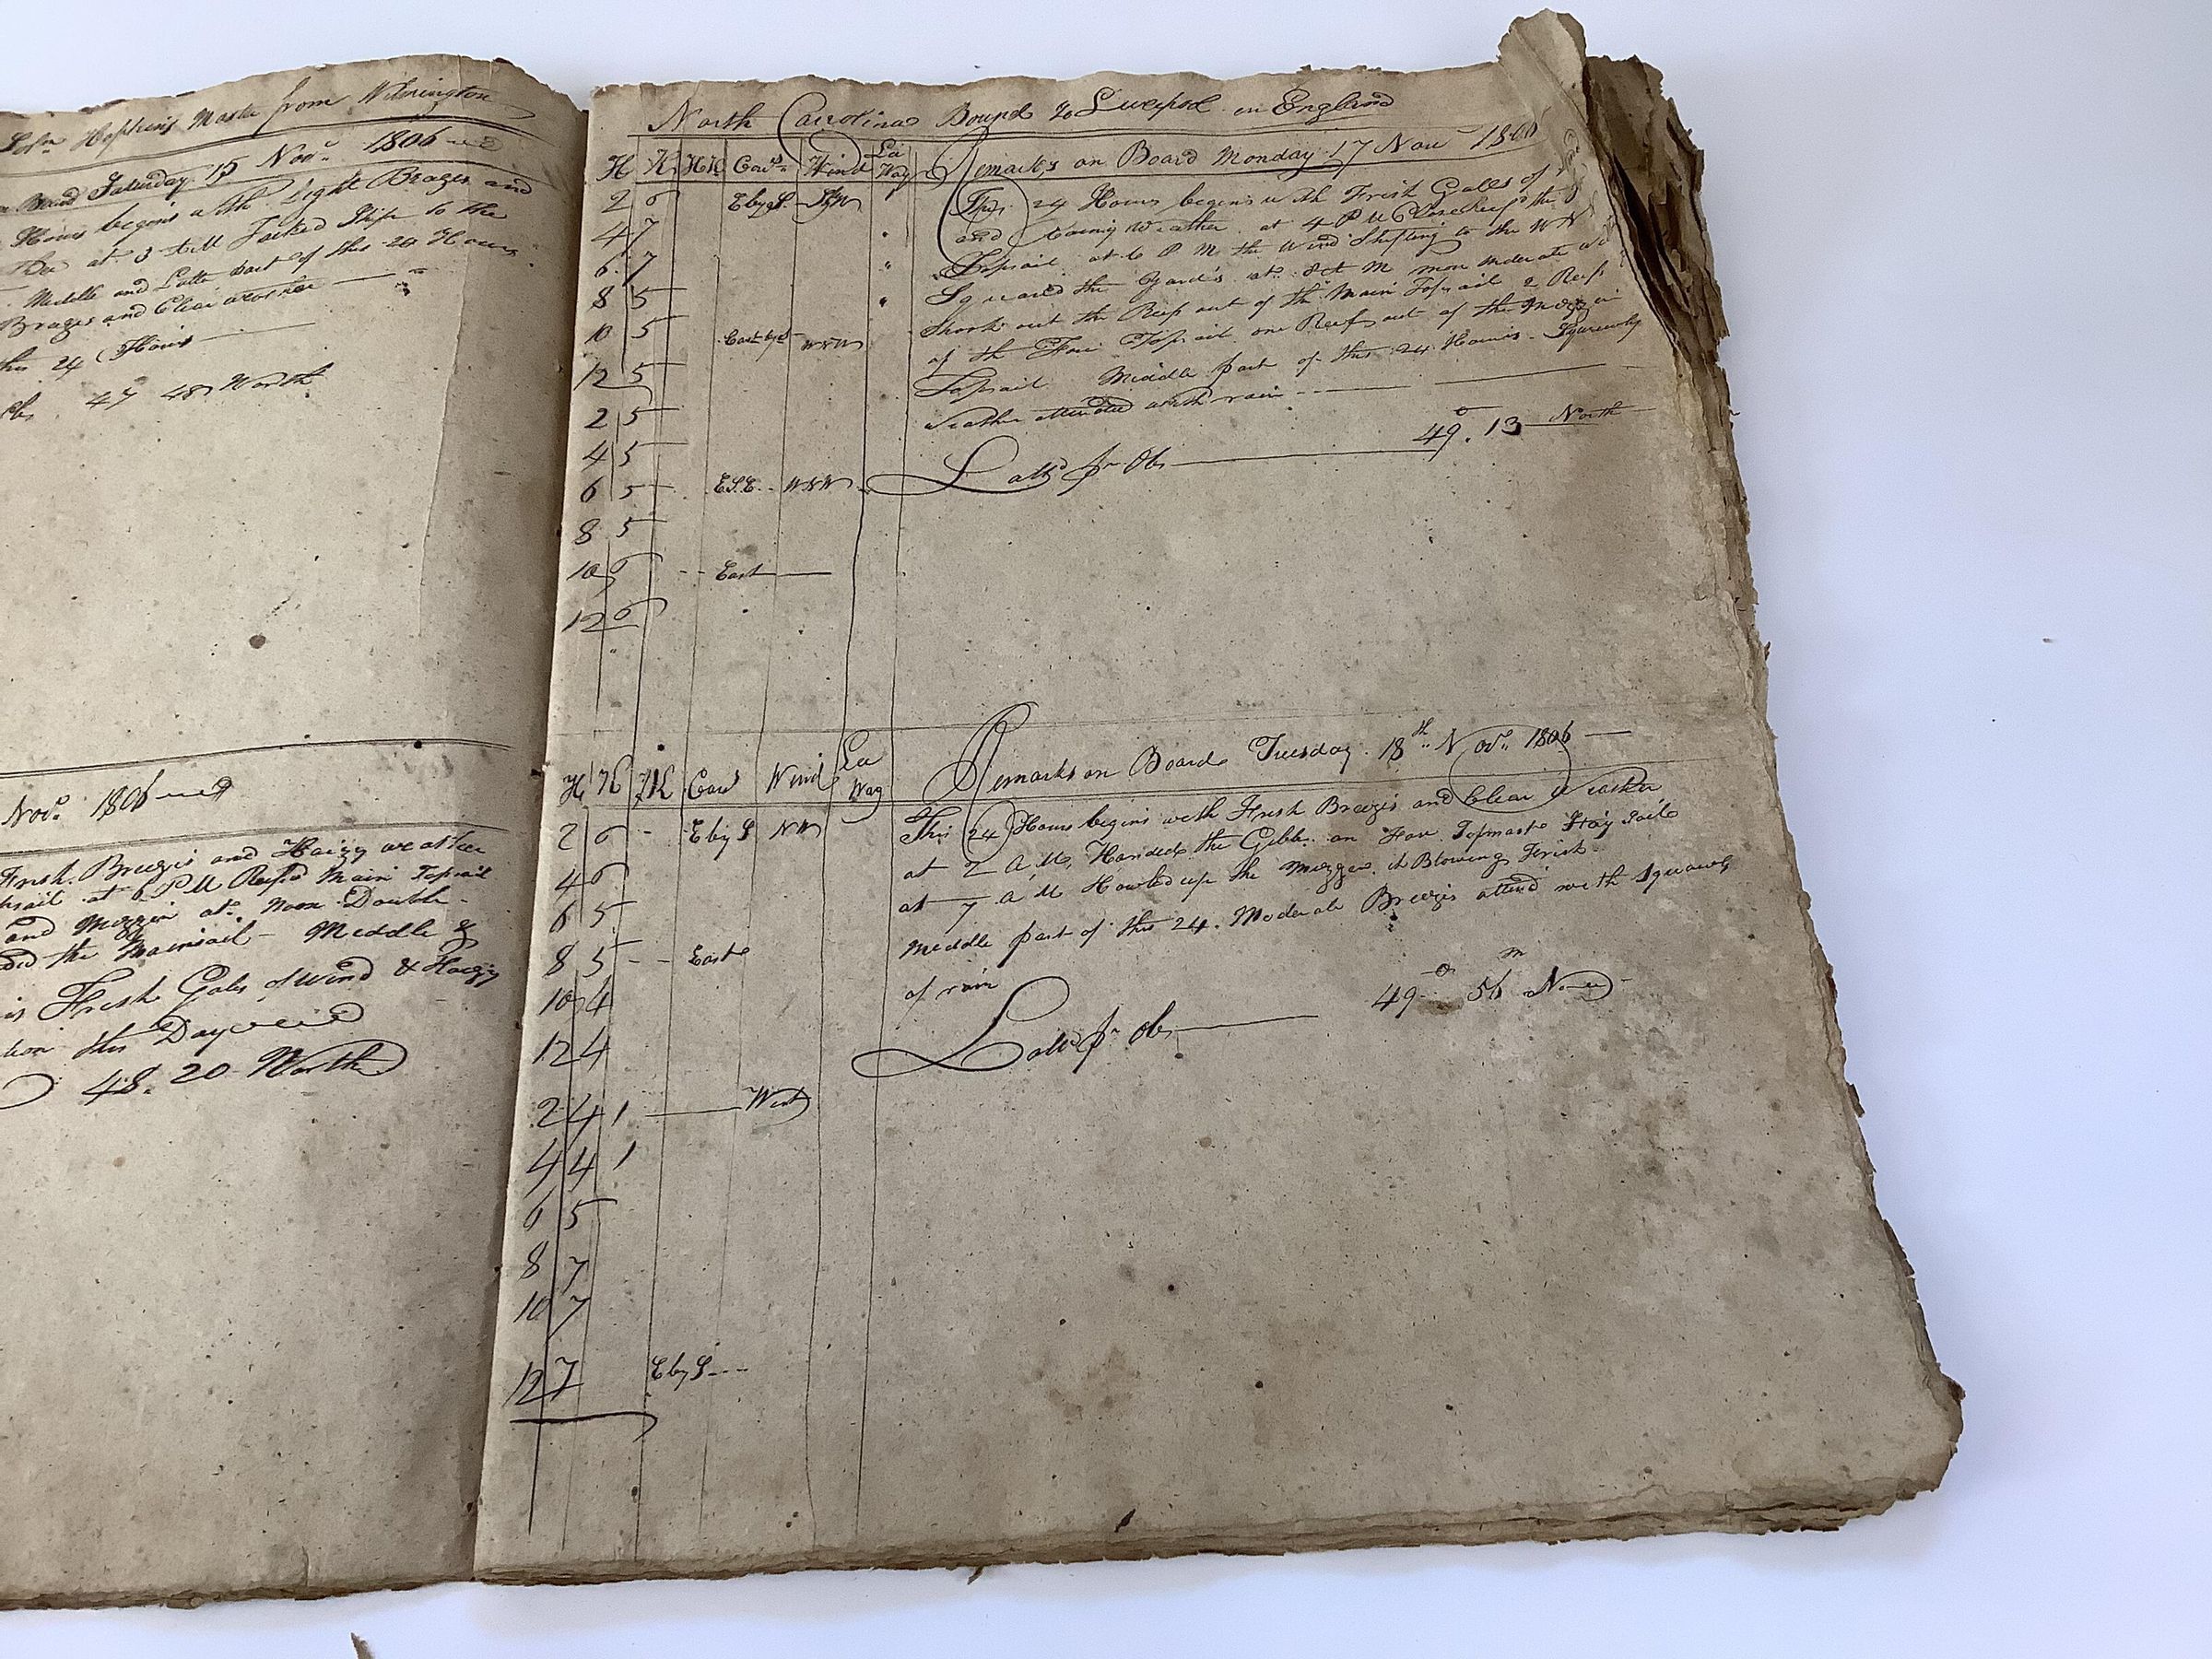 Hopkins Master from Wilmington
Board Saturday 15 Novr. 1806
Hours begins with light Brazes and
at 3 AM Tacked Ship to the
Middle and Latter part of this 24 Hours
Brazes and Clear weather
this 24 Hours
47 48 North
Novr. 1806
Fresh Breezes and Haizy weather
at 6 PM Reefd Main Topsail
and Mizzin at Noon Double
the Mainsail Middle &
Fresh Gales of Wind & Haizy
this Day
48. 20 North
North Carolina Bound To Liverpool in England
H K HK Cors Wind La Way Remarks on Board Monday 17 Nov 1806
This 24 Hours begins with Frish Galls of
and weather at 4 PM Close Reefd the
Topsail at 6 PM the Wind Shifting to the WN
Squared the Yards at 8 AM more moderate
Shook out the Reef out of the Main Topsail 2 Reef
of the Fore Topsail one Reef out of the Mizzin
Topsail Middle part of this 24 Hours Squawly
weather attended with rain
Lattd pr Ob 49°. 13 North
2 6 E by S
4 7
6 7
8 5
10 5 East by S WNW
12 5
2 5
4 5
6 5 ESE WNW
8 5
10 East
12 6
H K HK Cors Wind La Way Remarks on Board Tuesday 18th Novr. 1806
This 24 Hours begins with Frish Breezis and Clear Weather
at 2 AM Handed the Gibb an Fore Topmast Stay Sails
at 7 AM Howled up the Mizzen it Blowing Frish
Middle part of this 24. Moderate Breezis attend with Squawls
of rain
Lattd pr Ob 49° 56m N
2 6 E by S NW
4 6
6 5
8 5 East
10 4
12 4
2 4 1 West
4 4 1
6 5
8 7
10 7
12 7 E by S